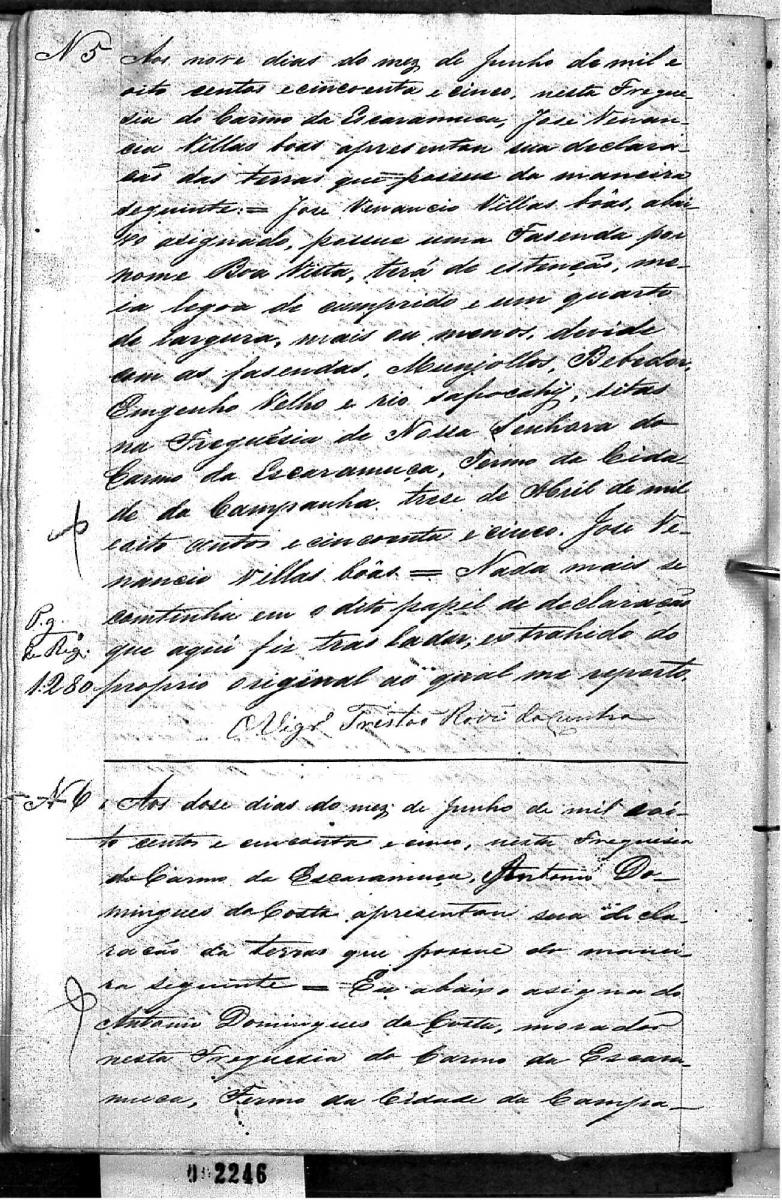 N 5 Aos nove dias do mez de Junho de mil e
oito centos e cincoenta e cinco, nesta Fregue-
sia do Carmo da Escaramuca, Jose Venan-
cio Villas boas apresentou sua declara-
ção das terras que possue da maneira
seguinte: = Jose Venancio Villas bôas, abai-
xo asignado, possue uma Fasenda por
nome Boa Vista, terá de estenção, me-
ia legoa de comprido e um quarto
de largura, mais ou menos, devide
com as fasendas, Munjollos, Bebedor,
Emgenho Velho e rio Sapocahy, sitas
na Freguesia de Nossa Senhora do
Carmo da Escaramuça, Termo da Cida-
de da Campanha. trese de Abril de mil
e oito centos e cincoenta e cinco. Jose Ve-
nancio Villas bôas = Nada mais se
comtinha em o dito papel de declaração
que aqui fiz tras ladar, extrahido do
proprio original ao qual me reporto.
P.g.
de Reg.
1280
O Vigr.º Trestão Roĩz da Cunha
N 6. Aos dose dias do mez de Junho de mil oi-
to centos e cincoenta e cinco, nesta Freguesia
do Carmo da Escaramuça, Antonio Do-
mingues da Costa apresentou sua decla-
ração da terras que possue do manei-
ra seguinte = Eu abaixo asigna do
Antonio Domingues da Costa, morador
nesta Freguesia do Carmo da Escara-
muca, Termo da Cidade da Campa-
2246